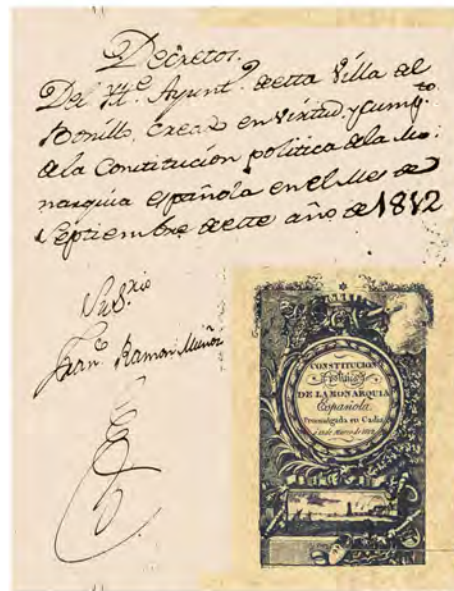 Decretos.
Del Ytt.e Ayunt.o deeta Villa del
Bonillo, creado en virtud, y cump.to
dela Constitucion politica dela Mo:
narquia española en el Mes de
Septiembre deete año de 1812
Su S.rio
Fran.co Ramon Muñoz
CONSTITUCION
Política
DE LA MONARQUIA
Española.
Promulgada en Cadiz
á 19 de Marzo de 1812.